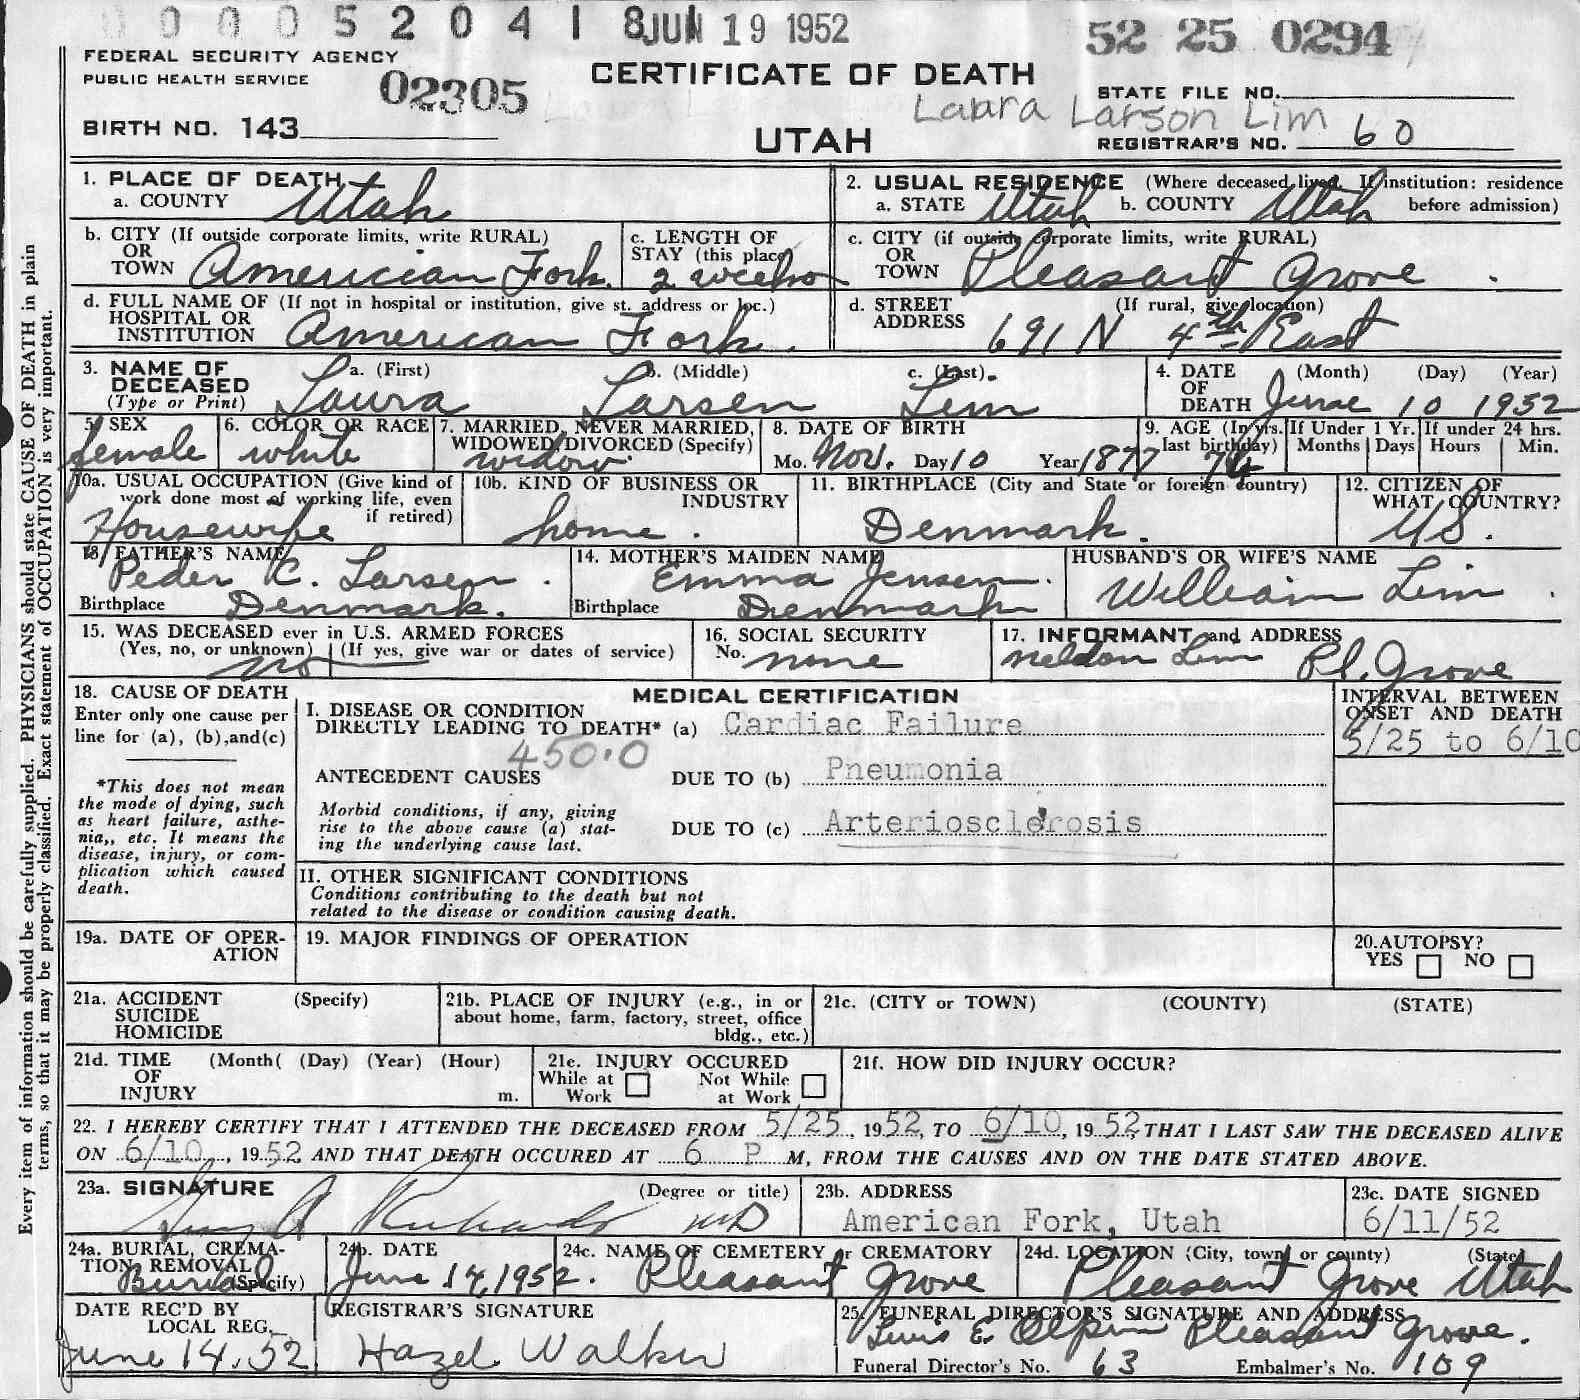 0 0 0 5 2 0 4 1 8 JUN 19 1952
52 25 0294
FEDERAL SECURITY AGENCY
PUBLIC HEALTH SERVICE
02305
CERTIFICATE OF DEATH
STATE FILE NO.
Laura Larson Lim
BIRTH NO. 143
UTAH
REGISTRAR'S NO. 60
1. PLACE OF DEATH
a. COUNTY Utah
2. USUAL RESIDENCE (Where deceased lived. If institution: residence
a. STATE Utah b. COUNTY Utah before admission)
b. CITY (If outside corporate limits, write RURAL)
OR
TOWN Americian Fork.
c. LENGTH OF
STAY (this place)
2 weeks
c. CITY (if outside corporate limits, write RURAL)
OR
TOWN Pleasant Grove.
d. FULL NAME OF (If not in hospital or institution, give st. address or loc.)
HOSPITAL OR
INSTITUTION American Fork.
d. STREET (If rural, give location)
ADDRESS 691 N 4th East
3. NAME OF
DECEASED
(Type or Print)
a. (First) b. (Middle) c. (Last).
Laura Larsen Lim
4. DATE (Month) (Day) (Year)
OF
DEATH June 10 1952
5. SEX
female
6. COLOR OR RACE
white
7. MARRIED, NEVER MARRIED,
WIDOWED, DIVORCED (Specify)
widow.
8. DATE OF BIRTH
Mo. Nov. Day 10 Year 1877
9. AGE (In yrs.
last birthday)
74
If Under 1 Yr.
Months Days
If under 24 hrs.
Hours Min.
10a. USUAL OCCUPATION (Give kind of
work done most of working life, even
if retired)
Housewife
10b. KIND OF BUSINESS OR
INDUSTRY
home.
11. BIRTHPLACE (City and State or foreign country)
Denmark.
12. CITIZEN OF
WHAT COUNTRY?
US.
13. FATHER'S NAME
Peder C. Larsen.
Birthplace Denmark.
14. MOTHER'S MAIDEN NAME
Emma Jensen.
Birthplace Denmark
HUSBAND'S OR WIFE'S NAME
William Lim.
15. WAS DECEASED ever in U.S. ARMED FORCES
(Yes, no, or unknown) (If yes, give war or dates of service)
no
16. SOCIAL SECURITY
No. none
17. INFORMANT and ADDRESS
Neldon Lim Pl. Grove
18. CAUSE OF DEATH
Enter only one cause per
line for (a), (b),and(c)
*This does not mean
the mode of dying, such
as heart failure, asthe-
nia,, etc. It means the
disease, injury, or com-
plication which caused
death.
MEDICAL CERTIFICATION
I. DISEASE OR CONDITION
DIRECTLY LEADING TO DEATH* (a) Cardiac Failure
450.0
ANTECEDENT CAUSES DUE TO (b) Pneumonia
Morbid conditions, if any, giving
rise to the above cause (a) stat-
ing the underlying cause last.
DUE TO (c) Arteriosclerosis
INTERVAL BETWEEN
ONSET AND DEATH
5/25 to 6/10
II. OTHER SIGNIFICANT CONDITIONS
Conditions contributing to the death but not
related to the disease or condition causing death.
19a. DATE OF OPER-
ATION
19. MAJOR FINDINGS OF OPERATION
20.AUTOPSY?
YES NO
21a. ACCIDENT (Specify)
SUICIDE
HOMICIDE
21b. PLACE OF INJURY (e.g., in or
about home, farm, factory, street, office
bldg., etc.)
21c. (CITY or TOWN) (COUNTY) (STATE)
21d. TIME (Month( (Day) (Year) (Hour)
OF
INJURY m.
21e. INJURY OCCURED
While at Not While
Work at Work
21f. HOW DID INJURY OCCUR?
22. I HEREBY CERTIFY THAT I ATTENDED THE DECEASED FROM 5/25, 1952, TO 6/10, 1952, THAT I LAST SAW THE DECEASED ALIVE
ON 6/10, 1952, AND THAT DEATH OCCURED AT 6 P M, FROM THE CAUSES AND ON THE DATE STATED ABOVE.
23a. SIGNATURE (Degree or title)
Richards MD
23b. ADDRESS
American Fork, Utah
23c. DATE SIGNED
6/11/52
24a. BURIAL, CREMA-
TION, REMOVAL
(Specify)
Burial
24b. DATE
June 14, 1952.
24c. NAME OF CEMETERY or CREMATORY
Pleasant Grove
24d. LOCATION (City, town or county) (State)
Pleasant Grove Utah
DATE REC'D BY
LOCAL REG.
June 14. 52
REGISTRAR'S SIGNATURE
Hazel Walker
25. FUNERAL DIRECTOR'S SIGNATURE AND ADDRESS
E. Olpin Pleasant Grove.
Funeral Director's No. 63 Embalmer's No. 109
Every item of information should be carefully supplied. PHYSICIANS should state CAUSE OF DEATH in plain
terms, so that it may be properly classified. Exact statement of OCCUPATION is very important.